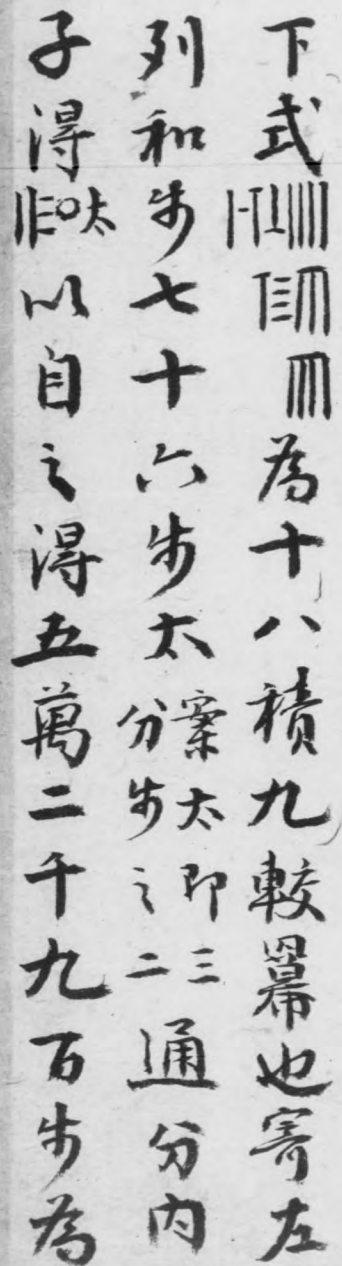 下式為十八積九較羃也寄左
列和步七十六步太案太即三分步之二通分内
子得||☰〇太以自之得五萬二千九百步為